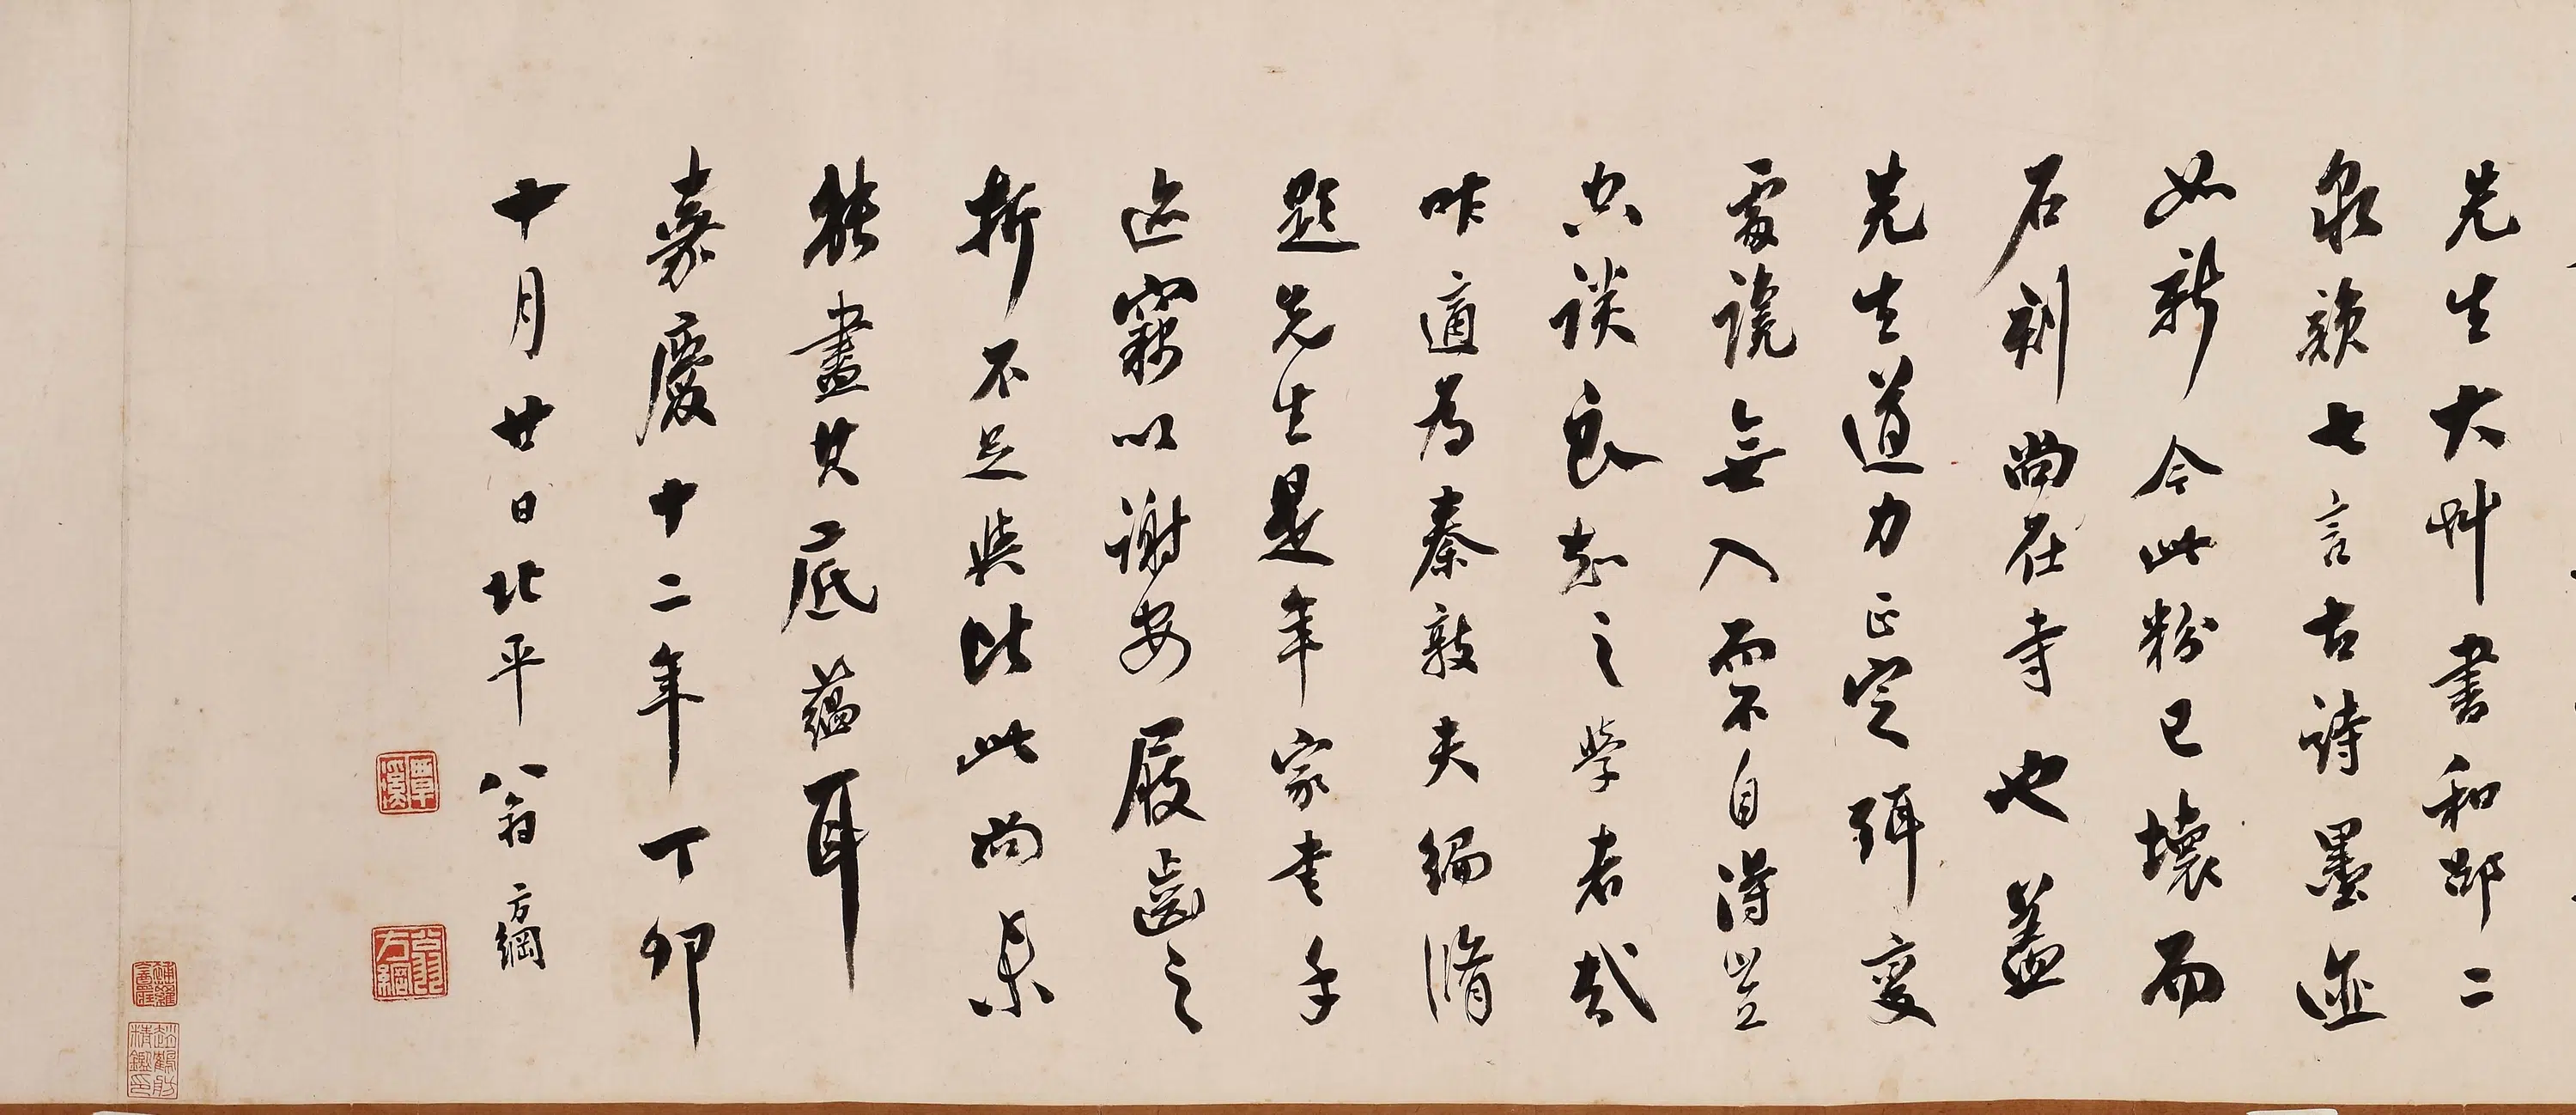 先生大艸書和邵二
泉韻七言古詩墨迹
如新今此粉已壞而
石刻尚在寺也蓋
先生道力正定弭變
處讒無入而不自得豈
空談良知之學者哉
昨適為秦敦夫編脩
題先生是年家書手
迹竊以謝安屐齒之
折不足與比此尚未
能盡其底蘊耳
嘉慶十二年丁卯
十月廿日北平翁方綱
覃溪
翁方綱
趙鶴舫精鑑印